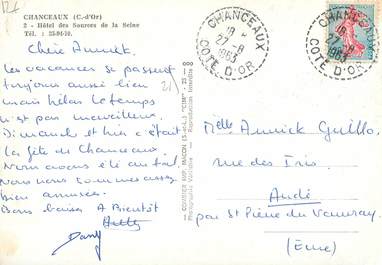 CHANCEAUX (C.-d'Or)
2 - Hôtel des Sources de la Seine
Tél. : 23-04-10.
Chère Annick.
Les vacances se passent
toujours aussi bien
mais hélas le temps
n'est pas merveilleux.
Dimanche et hier c'était
la fête de Chanceaux.
Nous avons été au bal,
nous nous sommes assez
bien amusées.
Bons baisers A Bientôt
Dany
COMBIER IMP. MACON (S.-et-L.) "CIM"
Photographie Véritable - Reproduction Interdite
CHANCEAUX
18 H
27-8
1963
COTE D'OR
CHANCEAUX
18 H
1963
COTE D'OR
Melle Annick Guillo
rue des Iris
Andé
par St Pierre du Vauvray
(Eure)